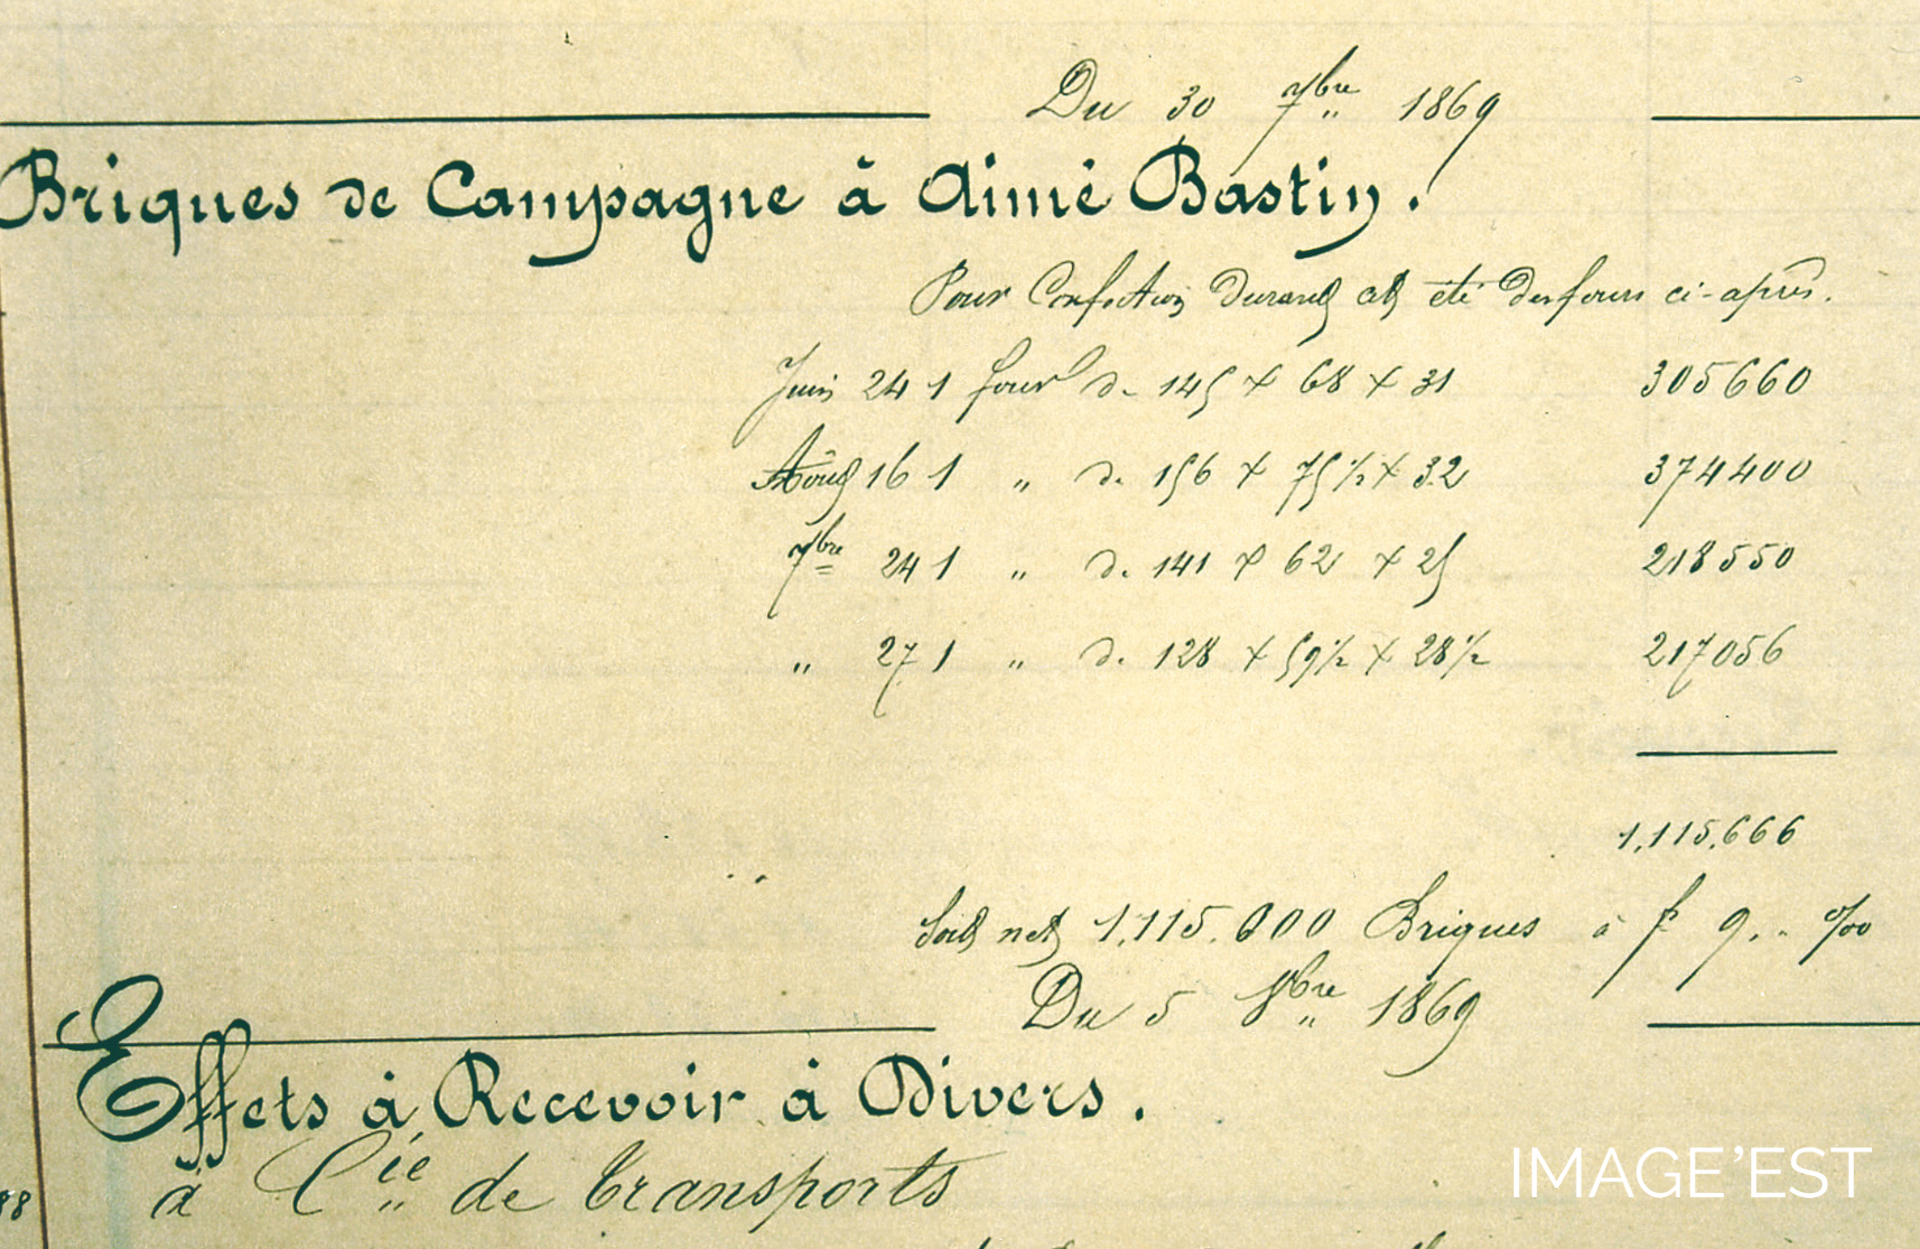 Du 30 7bre 1869
Briques de Campagne à Aimé Bastin.
Pour Confection Durant cet été des fours ci-après.
Juin 24 1 four de 145 x 68 x 31 305660
Août 16 1 " de 156 x 75 1/2 x 32 374400
7bre 24 1 " de 141 x 62 x 25 218550
" 27 1 " de 128 x 59 1/2 x 28 1/2 217056
1.115.666
Soit net 1.115.000 Briques à f 9. - %0
Du 5 8bre 1869
Effets à Recevoir à Divers.
88 à Cie de transports
IMAGE'EST